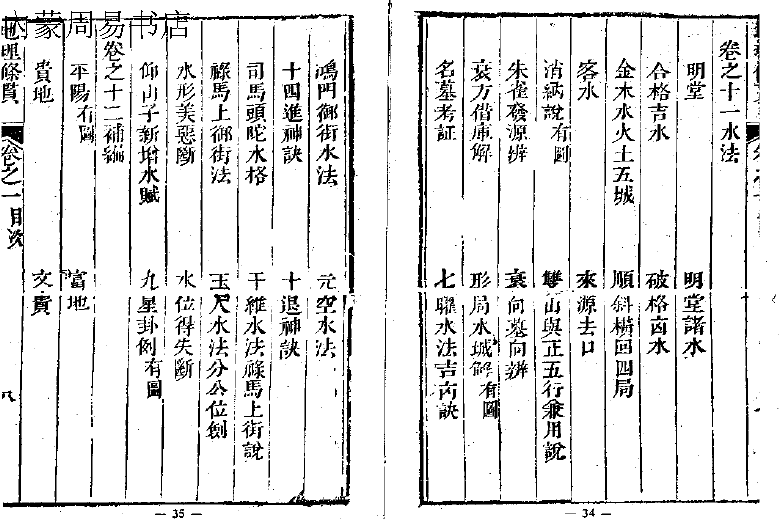 卷之十一水法
明堂
明堂諸水
合格吉水
破格凶水
金木水火土五城
順斜橫回四局
客水
來源去口
消納說有圖
雙山與正五行兼用說
朱雀發源辨
衰向墓向辨
衰方借庫解
形局水城解有圖
名墓考証
七曜水法吉凶訣
— 34 —
鴻門御街水法
元空水法
十四進神訣
十退神訣
司馬頭陀水格
干維水法祿馬上街說
祿馬上御街法
玉尺水法分公位劍
水形美惡斷
水位得失斷
仰山子新增水賦
九星卦例有圖
卷之十二補編
平陽有圖
富地
貴地
文貴
地理條貫
卷之一目次
八
— 35 —
蒙周易书店